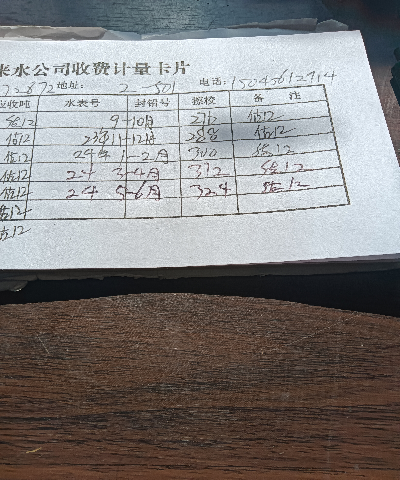 来水公司收费计量卡片
72872 地址: 2-501 电话:15045612714
应收吨 水表号 封铅号 擦校 备 注
估12 9-10月 276 估12
估12 23年11-12月 288 估12
估12 24年1-2月 300 估12
估12 24 3-4月 312 估12
估12 24 5-6月 324 估12
估12
估12